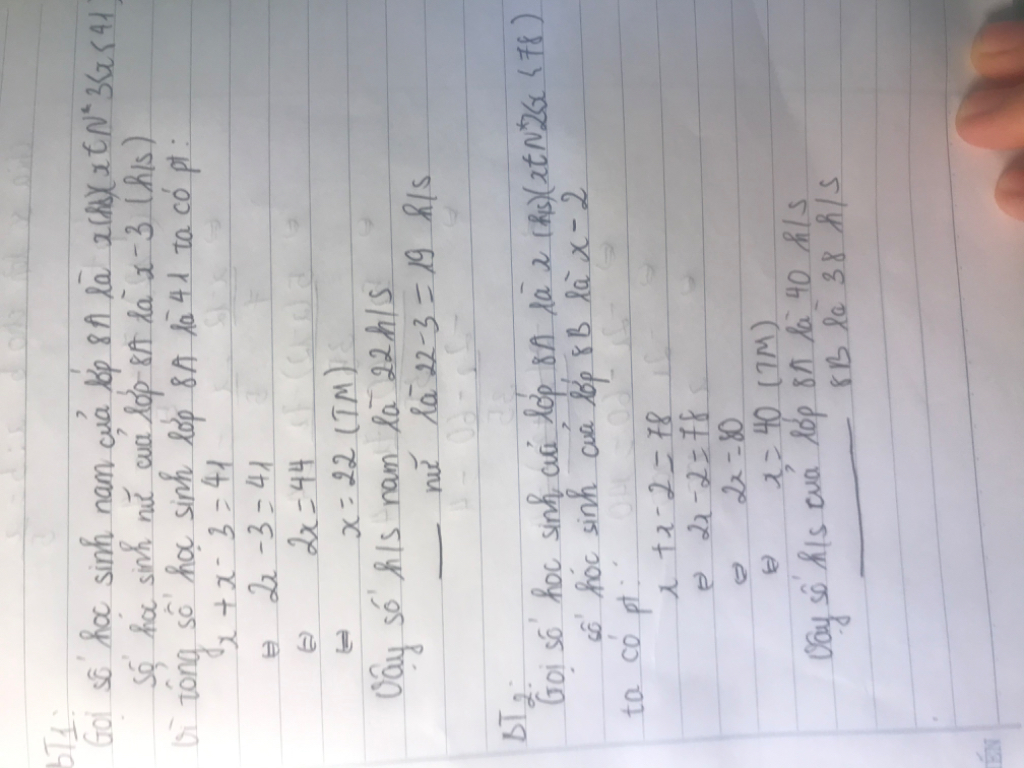 BT1:
Gọi số học sinh nam của lớp 8A là x (h/s)(x ∈ N* 3<x<41)
số học sinh nữ của lớp 8A là x-3 (h/s)
Vì tổng số học sinh lớp 8A là 41 ta có pt:
x + x - 3 = 41
⇔ 2x - 3 = 41
⇔ 2x = 44
⇔ x = 22 (TM)
Vậy số h/s nam là 22 h/s
nữ là 22-3 = 19 h/s
BT2:
Gọi số học sinh củ lớp 8A là x (hs)(x ∈ N* 2<x<78)
số hóc sinh của lớp 8B là x-2
ta có pt:
x + x - 2 = 78
⇔ 2x - 2 = 78
⇔ 2x = 80
⇔ x = 40 (TM)
Vậy số h/s của lớp 8A là 40 h/s
8B là 38 h/s